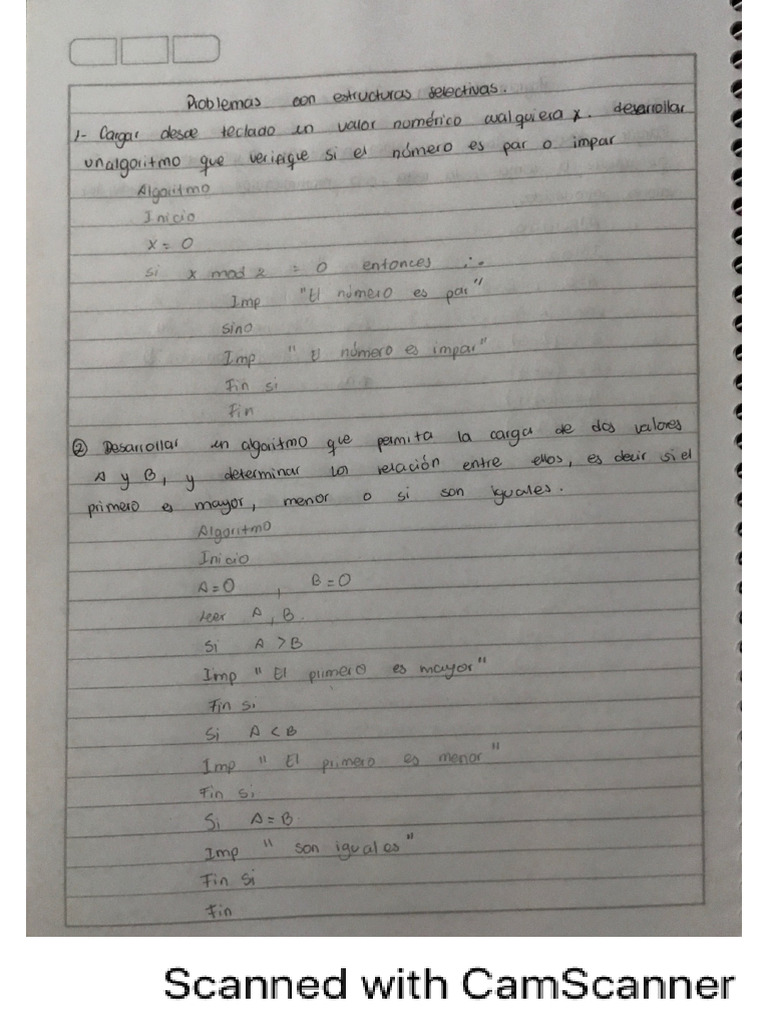 Problemas con estructuras selectivas.
1- Cargar desde teclado un valor numérico cualquiera x. desarrollar
un algoritmo que verifique si el número es par o impar
Algoritmo
Inicio
x = 0
Si x mod 2 = 0 entonces ∴
Imp "El número es par"
sino
Imp "El número es impar"
Fin si
Fin
② Desarrollar un algoritmo que permita la carga de dos valores
A y B, y determinar la relación entre ellos, es decir si el
primero es mayor, menor o si son iguales.
Algoritmo
Inicio
A=0 , B=0
Leer A, B.
Si A >B
Imp "El primero es mayor"
Fin si
Si A < B
Imp "El primero es menor"
Fin si
Si A = B
Imp "son iguales"
Fin Si
Fin
Scanned with CamScanner